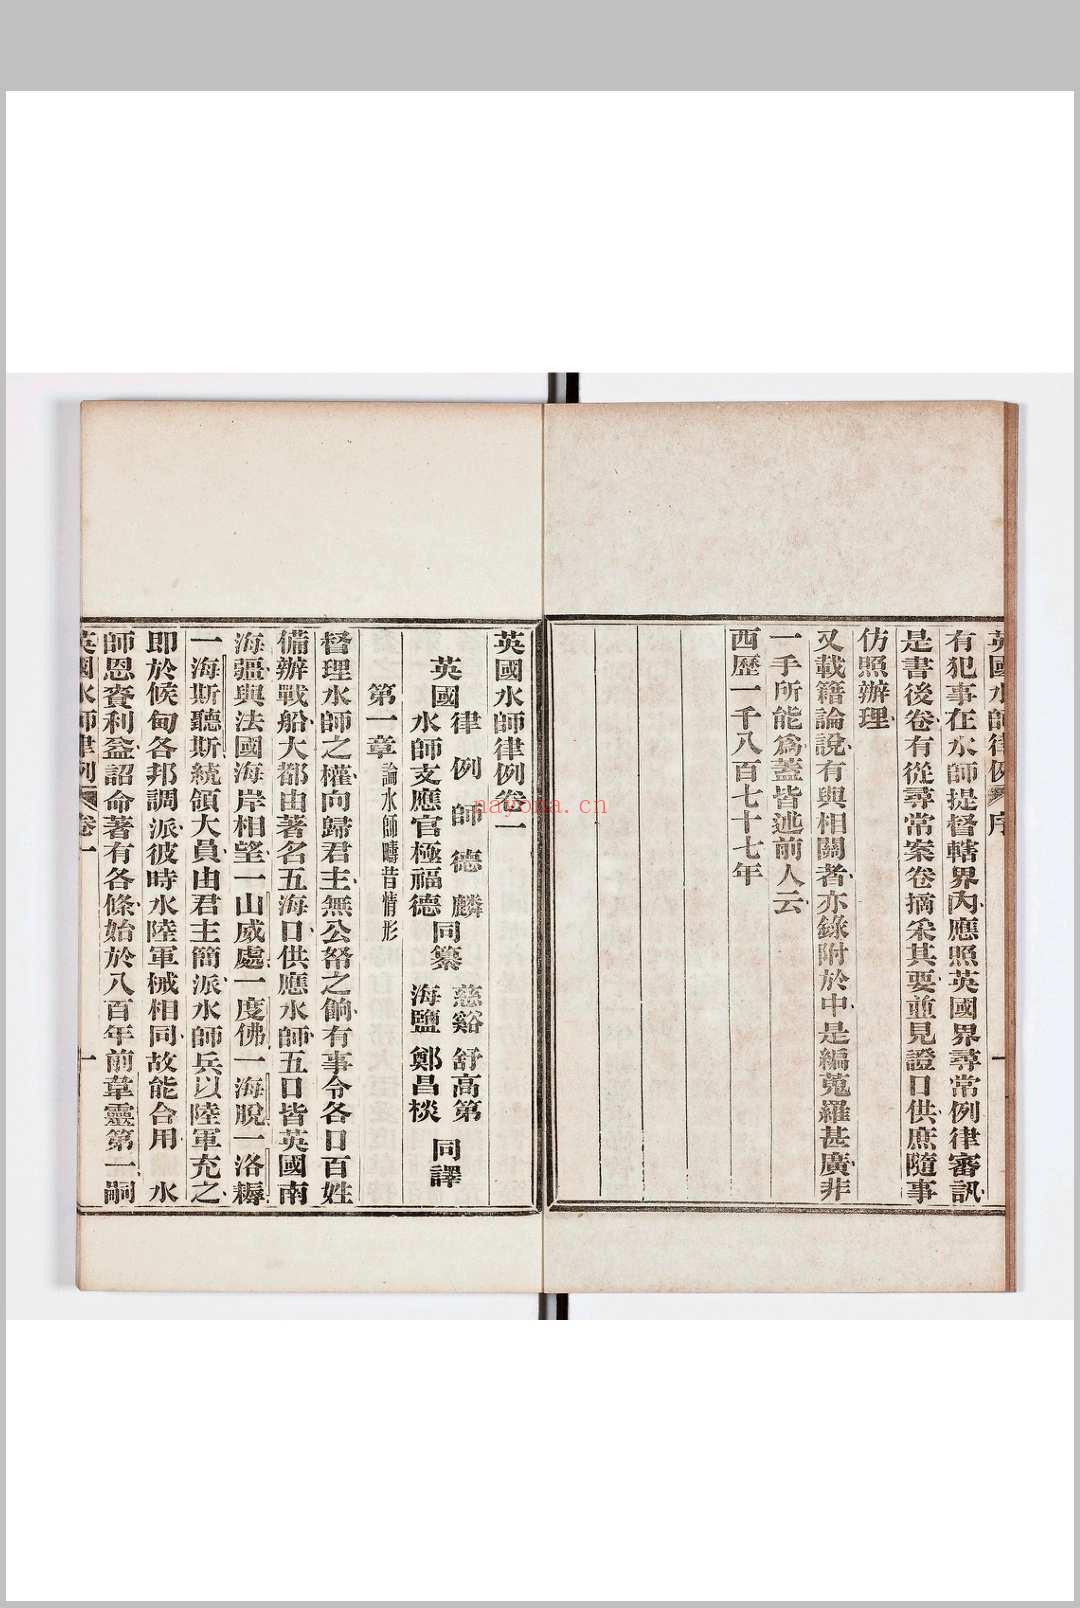 英國水師律例 序 一
有犯事在水師提督轄界內應照英國界尋常例律審訊
是書後卷有從尋常案卷摘采其要並見證口供庶隨事
仿照辦理
又載籍論說有與相關者亦錄附於中是編蒐羅甚廣非
一手所能爲蓋皆述前人云
西歷一千八百七十七年
英國水師律例卷一
英國 律例師德麟 同纂 慈谿 舒高第 同譯
水師支應官極福德 海鹽 鄭昌棪
第一章 論水師疇昔情形
督理水師之權向歸君主無公帑之餉有事令各口百姓
備辦戰船大都由著名五海口供應水師五口皆英國南
海疆與法國海岸相望一山威處一度佛一海脫一洛耨
一海斯聽斯統領大員由君主簡派水師兵以陸軍充之
即於候甸各邦調派彼時水陸軍械相同故能合用 水
師恩賚利益詔命著有各條始於八百年前韋靈第一嗣
英國水師律例 卷一 一
nayona.cn